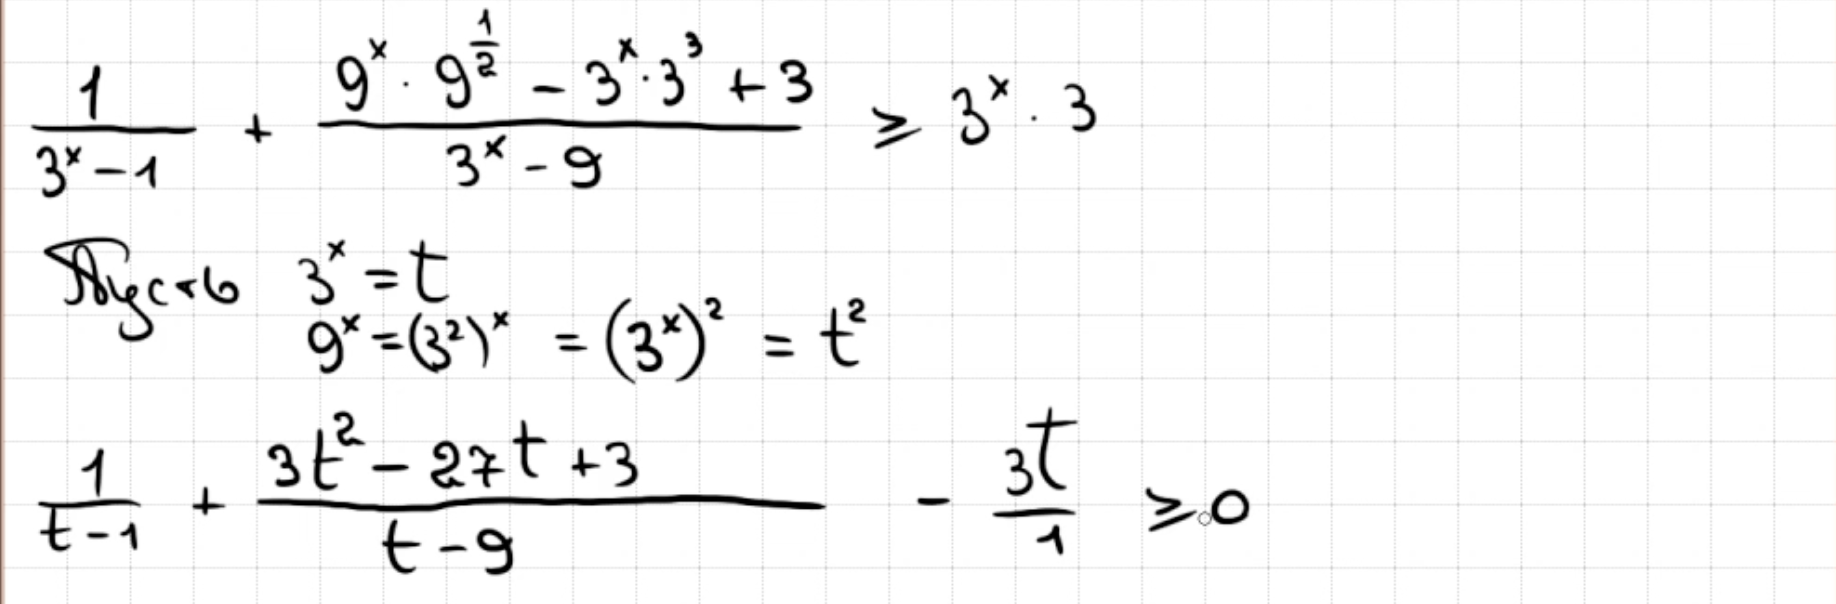 1/(3^x - 1) + (9^x · 9^(1/2) - 3^x · 3^3 + 3)/(3^x - 9) ≥ 3^x · 3
Пусть 3^x = t
9^x = (3^2)^x = (3^x)^2 = t^2
1/(t - 1) + (3t^2 - 27t + 3)/(t - 9) - 3t/1 ≥ 0